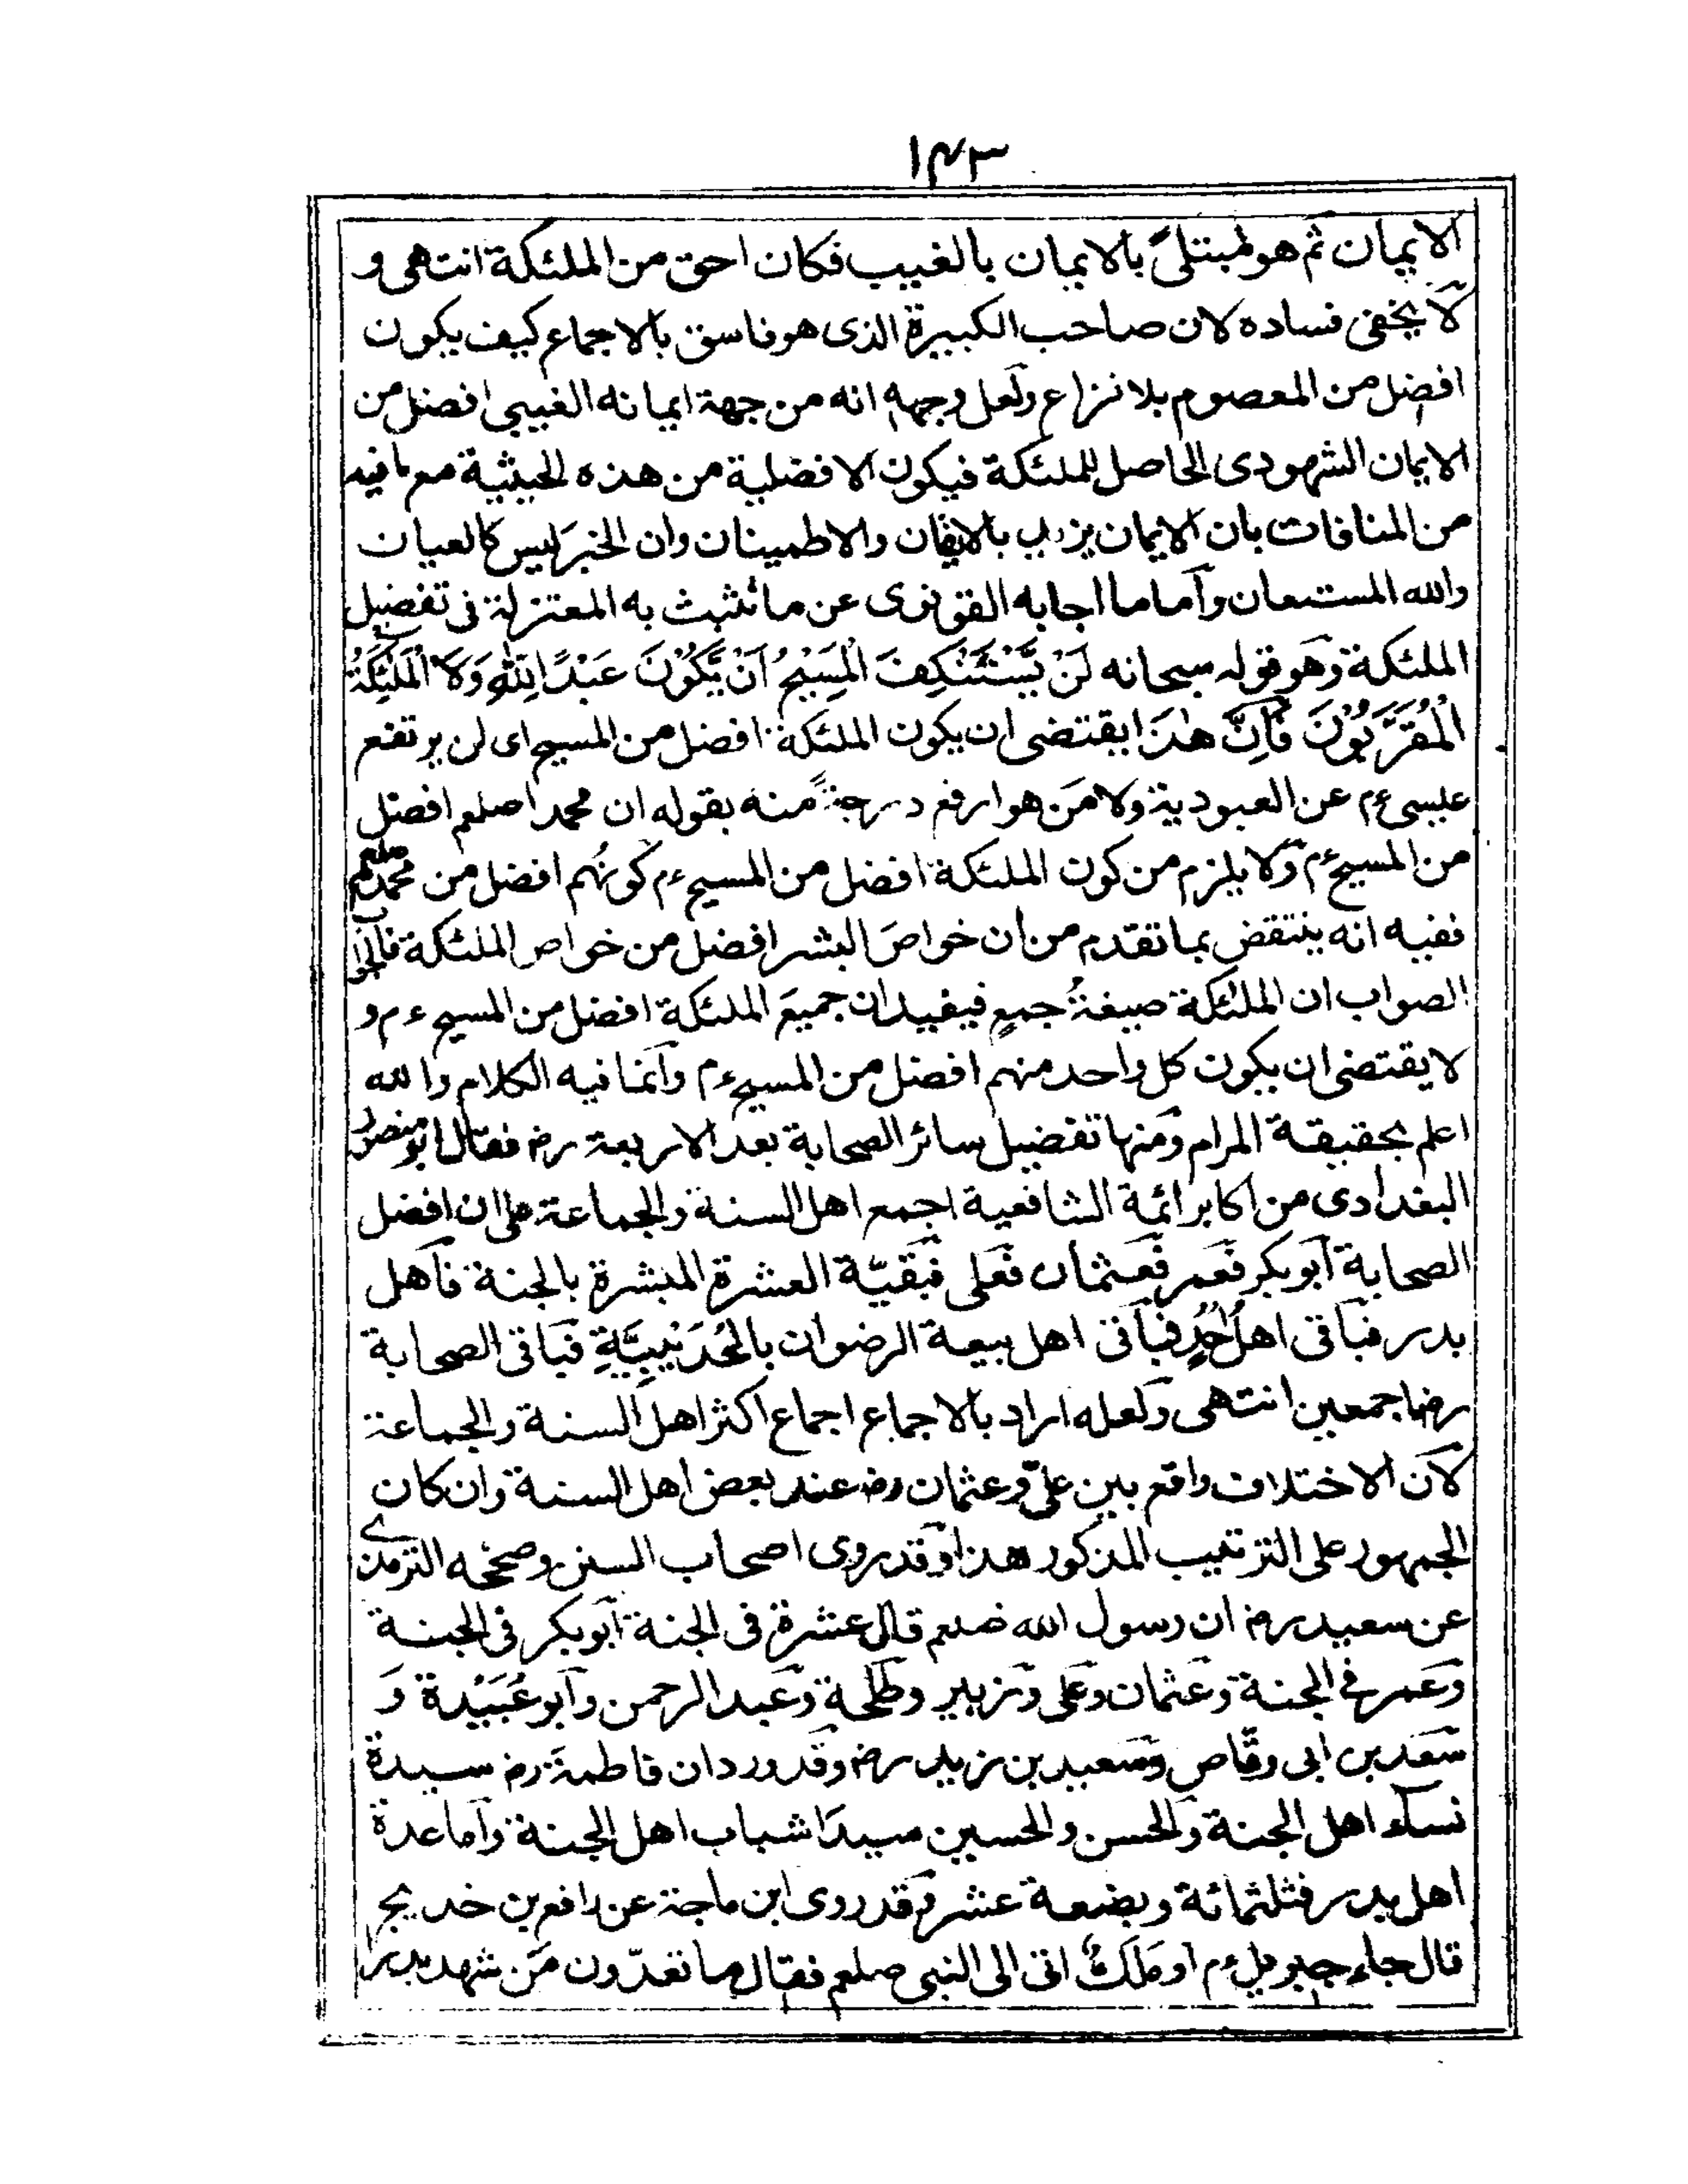 ١٤٣
الايمان ثم هو مبتلىً بالايمان بالغيب فكان احق من الملئكة انتهى و
لا يخفى فساده لان صاحب الكبيرة الذى هو فاسق بالاجماع كيف يكون
افضل من المعصوم بلا نزاع ولعل وجهه انه من جهة ايمانه الغيبى افضل من
الايمان الشهودى الحاصل للملئكة فيكون الافضلية من هذه الحيثية مع ما فيه
من المنافات بان الايمان يزيد بالايقان والاطمينان وان الخبر ليس كالعيان
والله المستعان وآما ما اجابه القونوى عن ما تشبث به المعتزلة فى تفضيل
الملئكة وهو قوله سبحانه لَنْ يَّسْتَنْكِفَ الْمَسِيْحُ اَنْ يَّكُوْنَ عَبْدًا لِلّٰهِ وَلَا الْمَلٰئِكَةُ
الْمُقَرَّبُوْنَ فَاِنَّ هٰذَا يقتضى ان يكون الملئكة افضل من المسيح اى لن يرتفع
عيسى ءم عن العبودية ولا مَن هو ارفع درجةً منه بقوله ان محمدا صلعم افضل
من المسيح ءم ولا يلزم من كون الملئكة افضل من المسيح ءم كونُهم افضل من محمد صلعم
ففيه انه ينتقض بما تقدم من ان خواصَ البشر افضل من خواص الملئكة فالجواب
الصواب ان الملئكة صيغةُ جمعٍ فيفيد ان جميعَ الملئكة افضل من المسيح ءم و
لا يقتضى ان يكون كل واحد منهم افضل من المسيح ءم وآنما فيه الكلام والله
اعلم بحقيقة المرام ومنها تفضيل سائر الصحابة بعد الاربعة رض فقال ابو منصور
البغدادى من اكابر ائمة الشافعية اجمع اهل السنة والجماعة على ان افضل
الصحابة آبو بكر فعمر فعثمان فعلى فبقيّة العشرة المبشرة بالجنة فآهل
بدر فباقى اهل اُحُدٍ فباقى اهل بيعة الرضوان بالحُدَيْبِيَّةِ فباقى الصحابة
رض اجمعين انتهى ولعله اراد بالاجماع اجماع اكثر اهل السنة والجماعة
لآن الاختلاف واقع بين علىّ وعثمان رض عند بعض اهل السنة وان كان
الجمهور على الترتيب المذكور هذا وقد روى اصحاب السنن وصححه الترمذى
عن سعيد رض ان رسول الله صلعم قال عشرة فى الجنة آبو بكر فى الجنة
وعمر فى الجنة وعثمان وعلى وزبير وطلحة وعبد الرحمن وآبو عُبَيْدة وَ
سعد بن ابى وقّاص وسعيد بن زيد رض وقد ورد ان فاطمة رض سيدة
نساء اهل الجنة والحسن والحسين سيدَا شباب اهل الجنة وآما عدة
اهل بدر فثلثمائة وبضعة عشر وقد روى ابن ماجة عن رافع بن خديج
قال جاء جبرئيل ءم او مَلَكٌ اتى الى النبى صلعم فقال ما تعدّون مَن شهد بدر